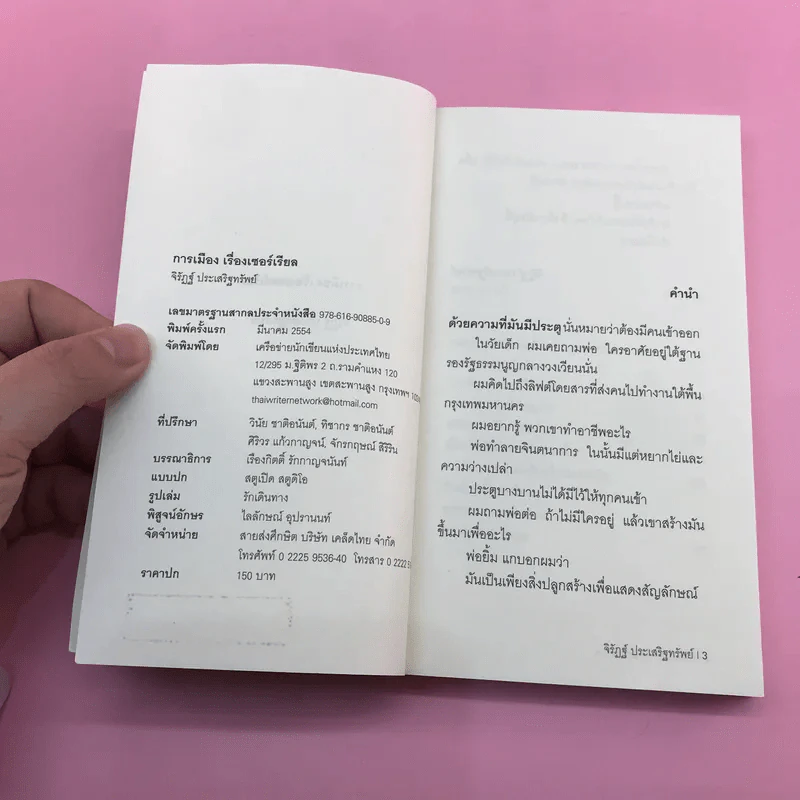 การเมือง เรื่องเซอร์เรียล
จิรัฏฐ์ ประเสริฐทรัพย์
เลขมาตรฐานสากลประจำหนังสือ 978-616-90885-0-9
พิมพ์ครั้งแรก มีนาคม 2554
จัดพิมพ์โดย เครือข่ายนักเขียนแห่งประเทศไทย
12/295 ม.ฐิติพร 2 ถ.รามคำแหง 120
แขวงสะพานสูง เขตสะพานสูง กรุงเทพฯ
thaiwriternetwork@hotmail.com
ที่ปรึกษา วินัย ชาติอนันต์, ทิชากร ชาติอนันต์
ศิริวร แก้วกาญจน์, จักรกฤษณ์ สิริริน
บรรณาธิการ เรืองกิตติ์ รักกาญจนันท์
แบบปก สตูเปิด สตูดิโอ
รูปเล่ม รักเดินทาง
พิสูจน์อักษร ไลลักษณ์ อุปรานนท์
จัดจำหน่าย สายส่งศึกษิต บริษัท เคล็ดไทย จำกัด
โทรศัพท์ 0 2225 9536-40 โทรสาร 0 2222 5
ราคาปก 150 บาท
คำนำ
ด้วยความที่มันมีประตู นั่นหมายว่าต้องมีคนเข้าออก
ในวัยเด็ก ผมเคยถามพ่อ ใครอาศัยอยู่ใต้ฐาน
รองรัฐธรรมนูญกลางวงเวียนนั่น
ผมคิดไปถึงลิฟต์โดยสารที่ส่งคนไปทำงานใต้พื้น
กรุงเทพมหานคร
ผมอยากรู้ พวกเขาทำอาชีพอะไร
พ่อทำลายจินตนาการ ในนั้นมีแต่หยากไย่และ
ความว่างเปล่า
ประตูบางบานไม่ได้มีไว้ให้ทุกคนเข้า
ผมถามพ่อต่อ ถ้าไม่มีใครอยู่ แล้วเขาสร้างมัน
ขึ้นมาเพื่ออะไร
พ่อยิ้ม แกบอกผมว่า
มันเป็นเพียงสิ่งปลูกสร้างเพื่อแสดงสัญลักษณ์
จิรัฏฐ์ ประเสริฐทรัพย์ | 3